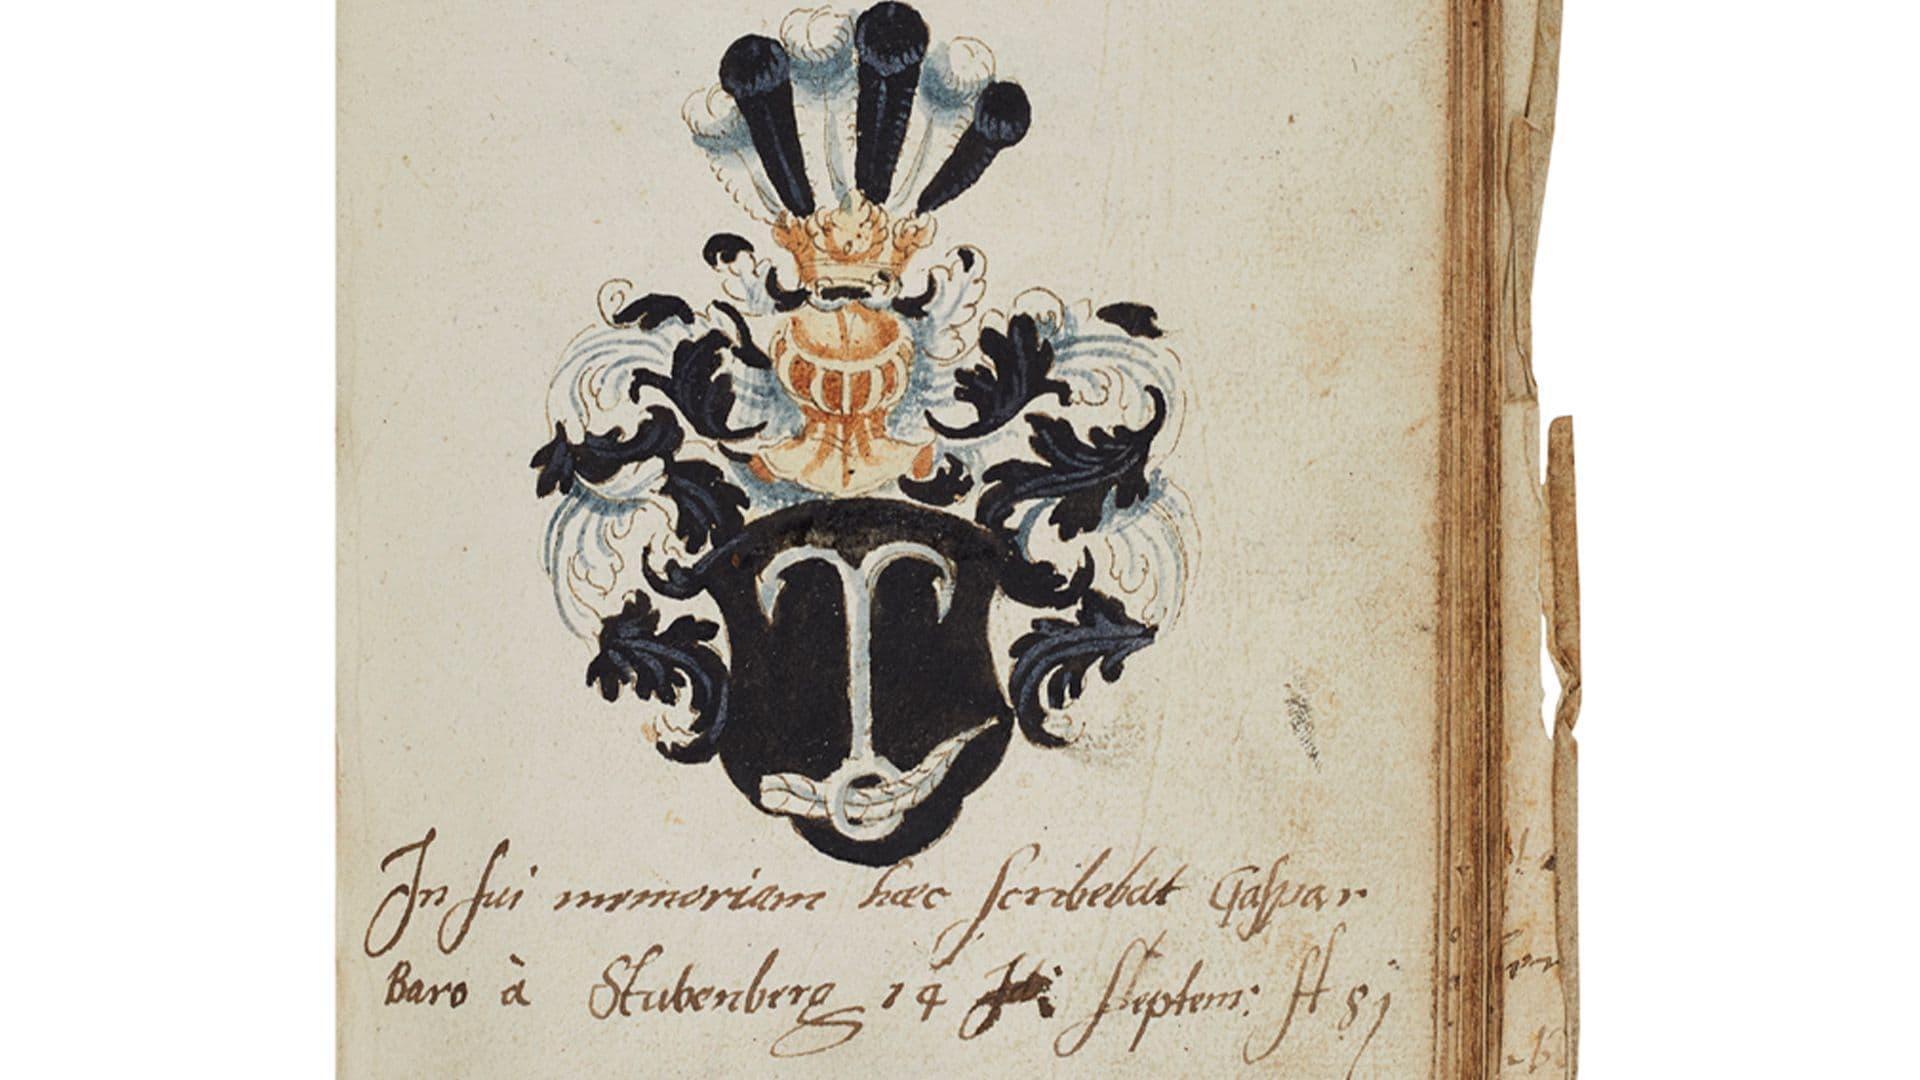 In sui memoriam hæc scribebat Caspar
Baro à Stubenberg 14 Septem: A 81